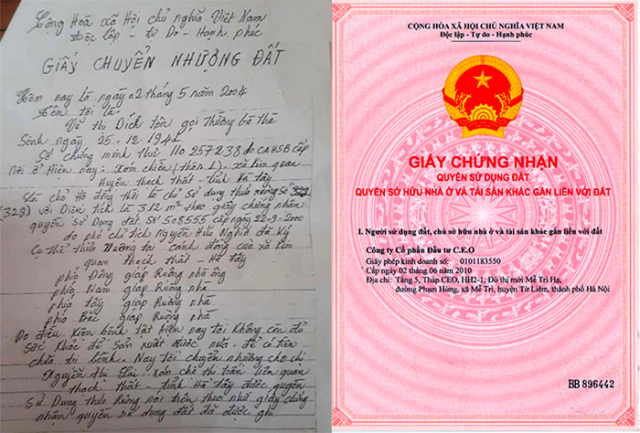 Cộng Hòa xã Hội chủ nghĩa Việt Nam
Độc lập - tự Do - Hạnh phúc
GIẤY CHUYỂN NHƯỢNG ĐẤT
Hôm nay là ngày 02 tháng 5 năm 2004
Tên tôi là
Vũ thị Dích tên gọi thường bà thá
Sinh ngày 25-12-194
Số chứng minh thư 110 257238 do CAHSB cấp
Nơi ở Hiện nay: xóm chiến (thôn 1) xã kim quan
Huyện thạch thất - tỉnh Hà tây
(329) với Diện tích là 312 m² theo giấy chứng nhận
quyền sử Dụng đất Số 508555 cấp ngày 22-9-200
do phó chủ tịch Nguyễn Hữu Nghĩa đã ký
Cụ thể thửa Ruộng tại cánh đồng của xã kim
quan thạch thất - Hà tây
phía Đông giáp Ruộng nhà ông
phía Nam giáp Ruộng
phía Tây giáp Ruộng nhà
phía Bắc giáp Ruộng nhà
Do điều kiện bệnh tật hiện nay tôi không còn đủ
Sức khỏe để sản xuất được nữa. để có tiền
chữa trị bệnh. Nay tôi chuyển nhượng cho chị
Nguyễn thị - xóm chợ thị trấn liên quan
thạch thất - tỉnh Hà tây được quyền
Sử Dụng thửa Ruộng nói trên theo như giấy chứng
nhận quyền sử dụng đất đã được ghi
CỘNG HÒA XÃ HỘI CHỦ NGHĨA VIỆT NAM
Độc lập - Tự do - Hạnh phúc
GIẤY CHỨNG NHẬN
QUYỀN SỬ DỤNG ĐẤT
QUYỀN SỞ HỮU NHÀ Ở VÀ TÀI SẢN KHÁC GẮN LIỀN VỚI ĐẤT
I. Người sử dụng đất, chủ sở hữu nhà ở và tài sản khác gắn liền với đất
Công ty Cổ phần Đầu tư C.E.O
Giấy phép kinh doanh số: 0101183550
Cấp ngày 02 tháng 06 năm 2010
Địa chỉ: Tầng 5, Tháp CEO, HH2-1, Đô thị mới Mễ Trì Hạ,
đường Phạm Hùng, xã Mễ Trì, huyện Từ Liêm, thành phố Hà Nội
BB 896442